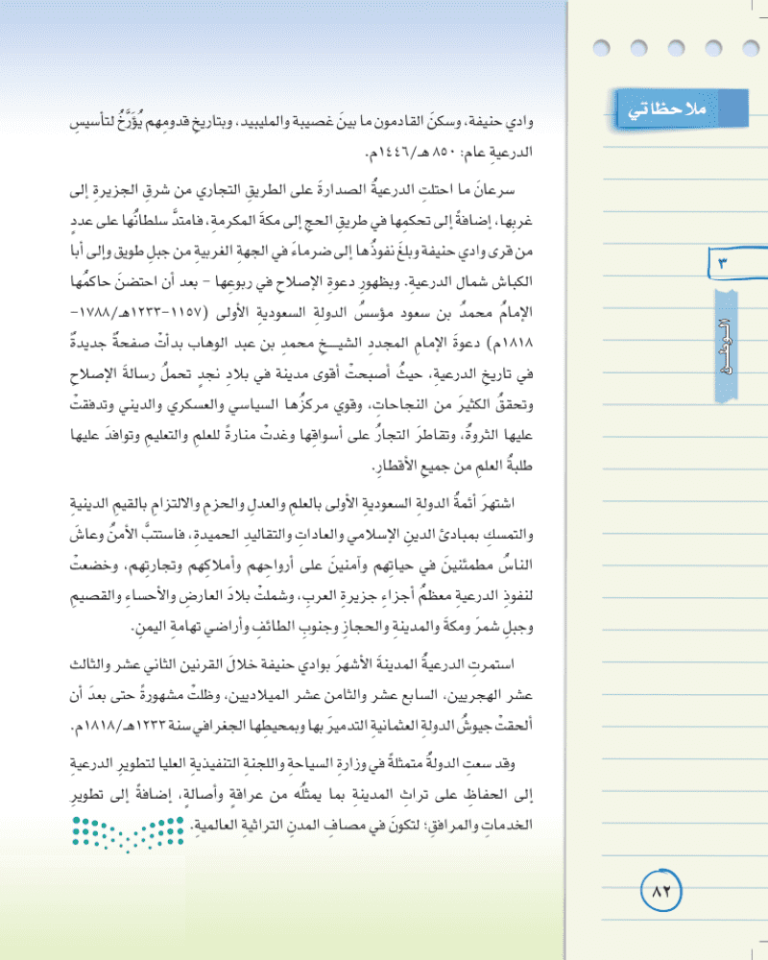 ملاحظاتي
وادي حنيفة، وسكنَ القادمون ما بينَ غصيبة والمليبيد، وبتاريخِ قدومِهم يُؤَرَّخُ لتأسيسِ
الدرعيةِ عام: ٨٥٠ هـ/١٤٤٦م.
سرعانَ ما احتلتِ الدرعيةُ الصدارةَ على الطريقِ التجاري من شرقِ الجزيرةِ إلى
غربِها، إضافةً إلى تحكمِها في طريقِ الحجِ إلى مكةَ المكرمةِ، فامتدَّ سلطانُها على عددٍ
من قرى وادي حنيفة وبلغَ نفوذُها إلى ضرماءَ في الجهةِ الغربيةِ من جبلِ طويق وإلى أبا
الكباش شمال الدرعيةِ. وبظهورِ دعوةِ الإصلاحِ في ربوعِها - بعد أن احتضنَ حاكمُها
الإمامُ محمدُ بن سعود مؤسسُ الدولةِ السعوديةِ الأولى (١١٥٧-١٢٣٣هـ/١٧٨٨-
١٨١٨م) دعوةَ الإمامِ المجددِ الشيــخِ محمدِ بن عبد الوهاب بدأتْ صفحةٌ جديدةٌ
في تاريخِ الدرعيةِ، حيثُ أصبحتْ أقوى مدينة في بلادِ نجدٍ تحملُ رسالةَ الإصلاحِ
وتحققُ الكثيرَ من النجاحاتِ، وقوي مركزُها السياسي والعسكري والديني وتدفقتْ
عليها الثروةُ، وتقاطرَ التجارُ على أسواقِها وغدتْ منارةً للعلمِ والتعليمِ وتوافدَ عليها
طلبةُ العلمِ من جميعِ الأقطارِ.
اشتهرَ أئمةُ الدولةِ السعوديةِ الأولى بالعلمِ والعدلِ والحزمِ والالتزامِ بالقيمِ الدينيةِ
والتمسكِ بمبادئ الدينِ الإسلامي والعاداتِ والتقاليدِ الحميدةِ، فاستتبَّ الأمنُ وعاشَ
الناسُ مطمئنينَ في حياتِهم وآمنينَ على أرواحِهم وأملاكِهم وتجارتِهم، وخضعتْ
لنفوذِ الدرعيةِ معظمُ أجزاءِ جزيرةِ العربِ، وشملتْ بلادَ العارضِ والأحساءِ والقصيمِ
وجبلِ شمرَ ومكةَ والمدينةِ والحجازِ وجنوبِ الطائفِ وأراضي تهامةِ اليمنِ.
استمرتِ الدرعيةُ المدينةَ الأشهرَ بوادي حنيفة خلالَ القرنينِ الثاني عشر والثالث
عشر الهجريين، السابع عشر والثامن عشر الميلاديين، وظلتْ مشهورةً حتى بعدَ أن
ألحقتْ جيوشُ الدولةِ العثمانيةِ التدميرَ بها وبمحيطِها الجغرافي سنة ١٢٣٣هـ/١٨١٨م.
وقد سعتِ الدولةُ متمثلةً في وزارةِ السياحةِ واللجنةِ التنفيذيةِ العليا لتطويرِ الدرعيةِ
إلى الحفاظِ على تراثِ المدينةِ بما يمثلُه من عراقةٍ وأصالةٍ، إضافةً إلى تطويرِ
الخدماتِ والمرافقِ؛ لتكونَ في مصافِ المدنِ التراثيةِ العالميةِ.
٣
الوطن
٨٢